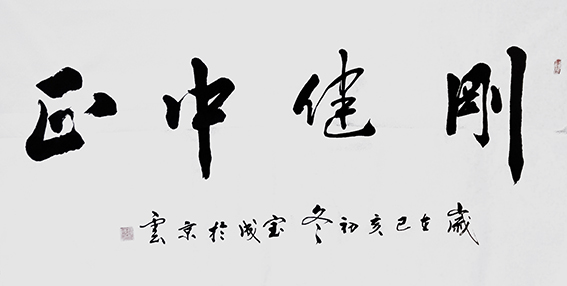 剛健中正
歲在己亥初冬宝成於京雲